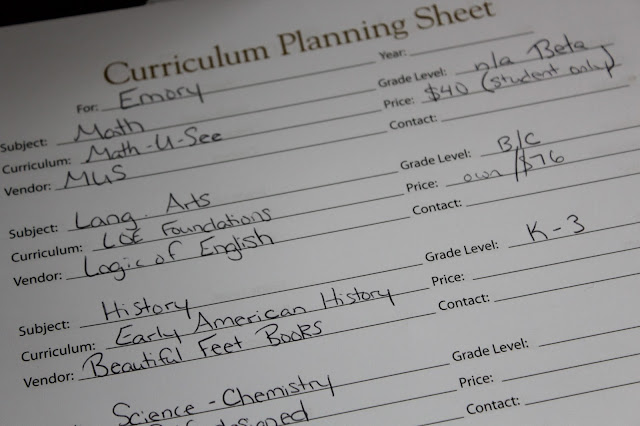 Curriculum Planning Sheet
For: Emory Year:
Subject: Math Grade Level: n/a Beta
Curriculum: Math-U-See Price: $40 (student only)
Vendor: MUS Contact:
Subject: Lang. Arts Grade Level: B/C
Curriculum: LOE Foundations Price: own/$76
Vendor: Logic of English Contact:
Subject: History Grade Level: K-3
Curriculum: Early American History Price:
Vendor: Beautiful Feet Books Contact:
Science - Chemistry Grade Level:
Price:
Contact: